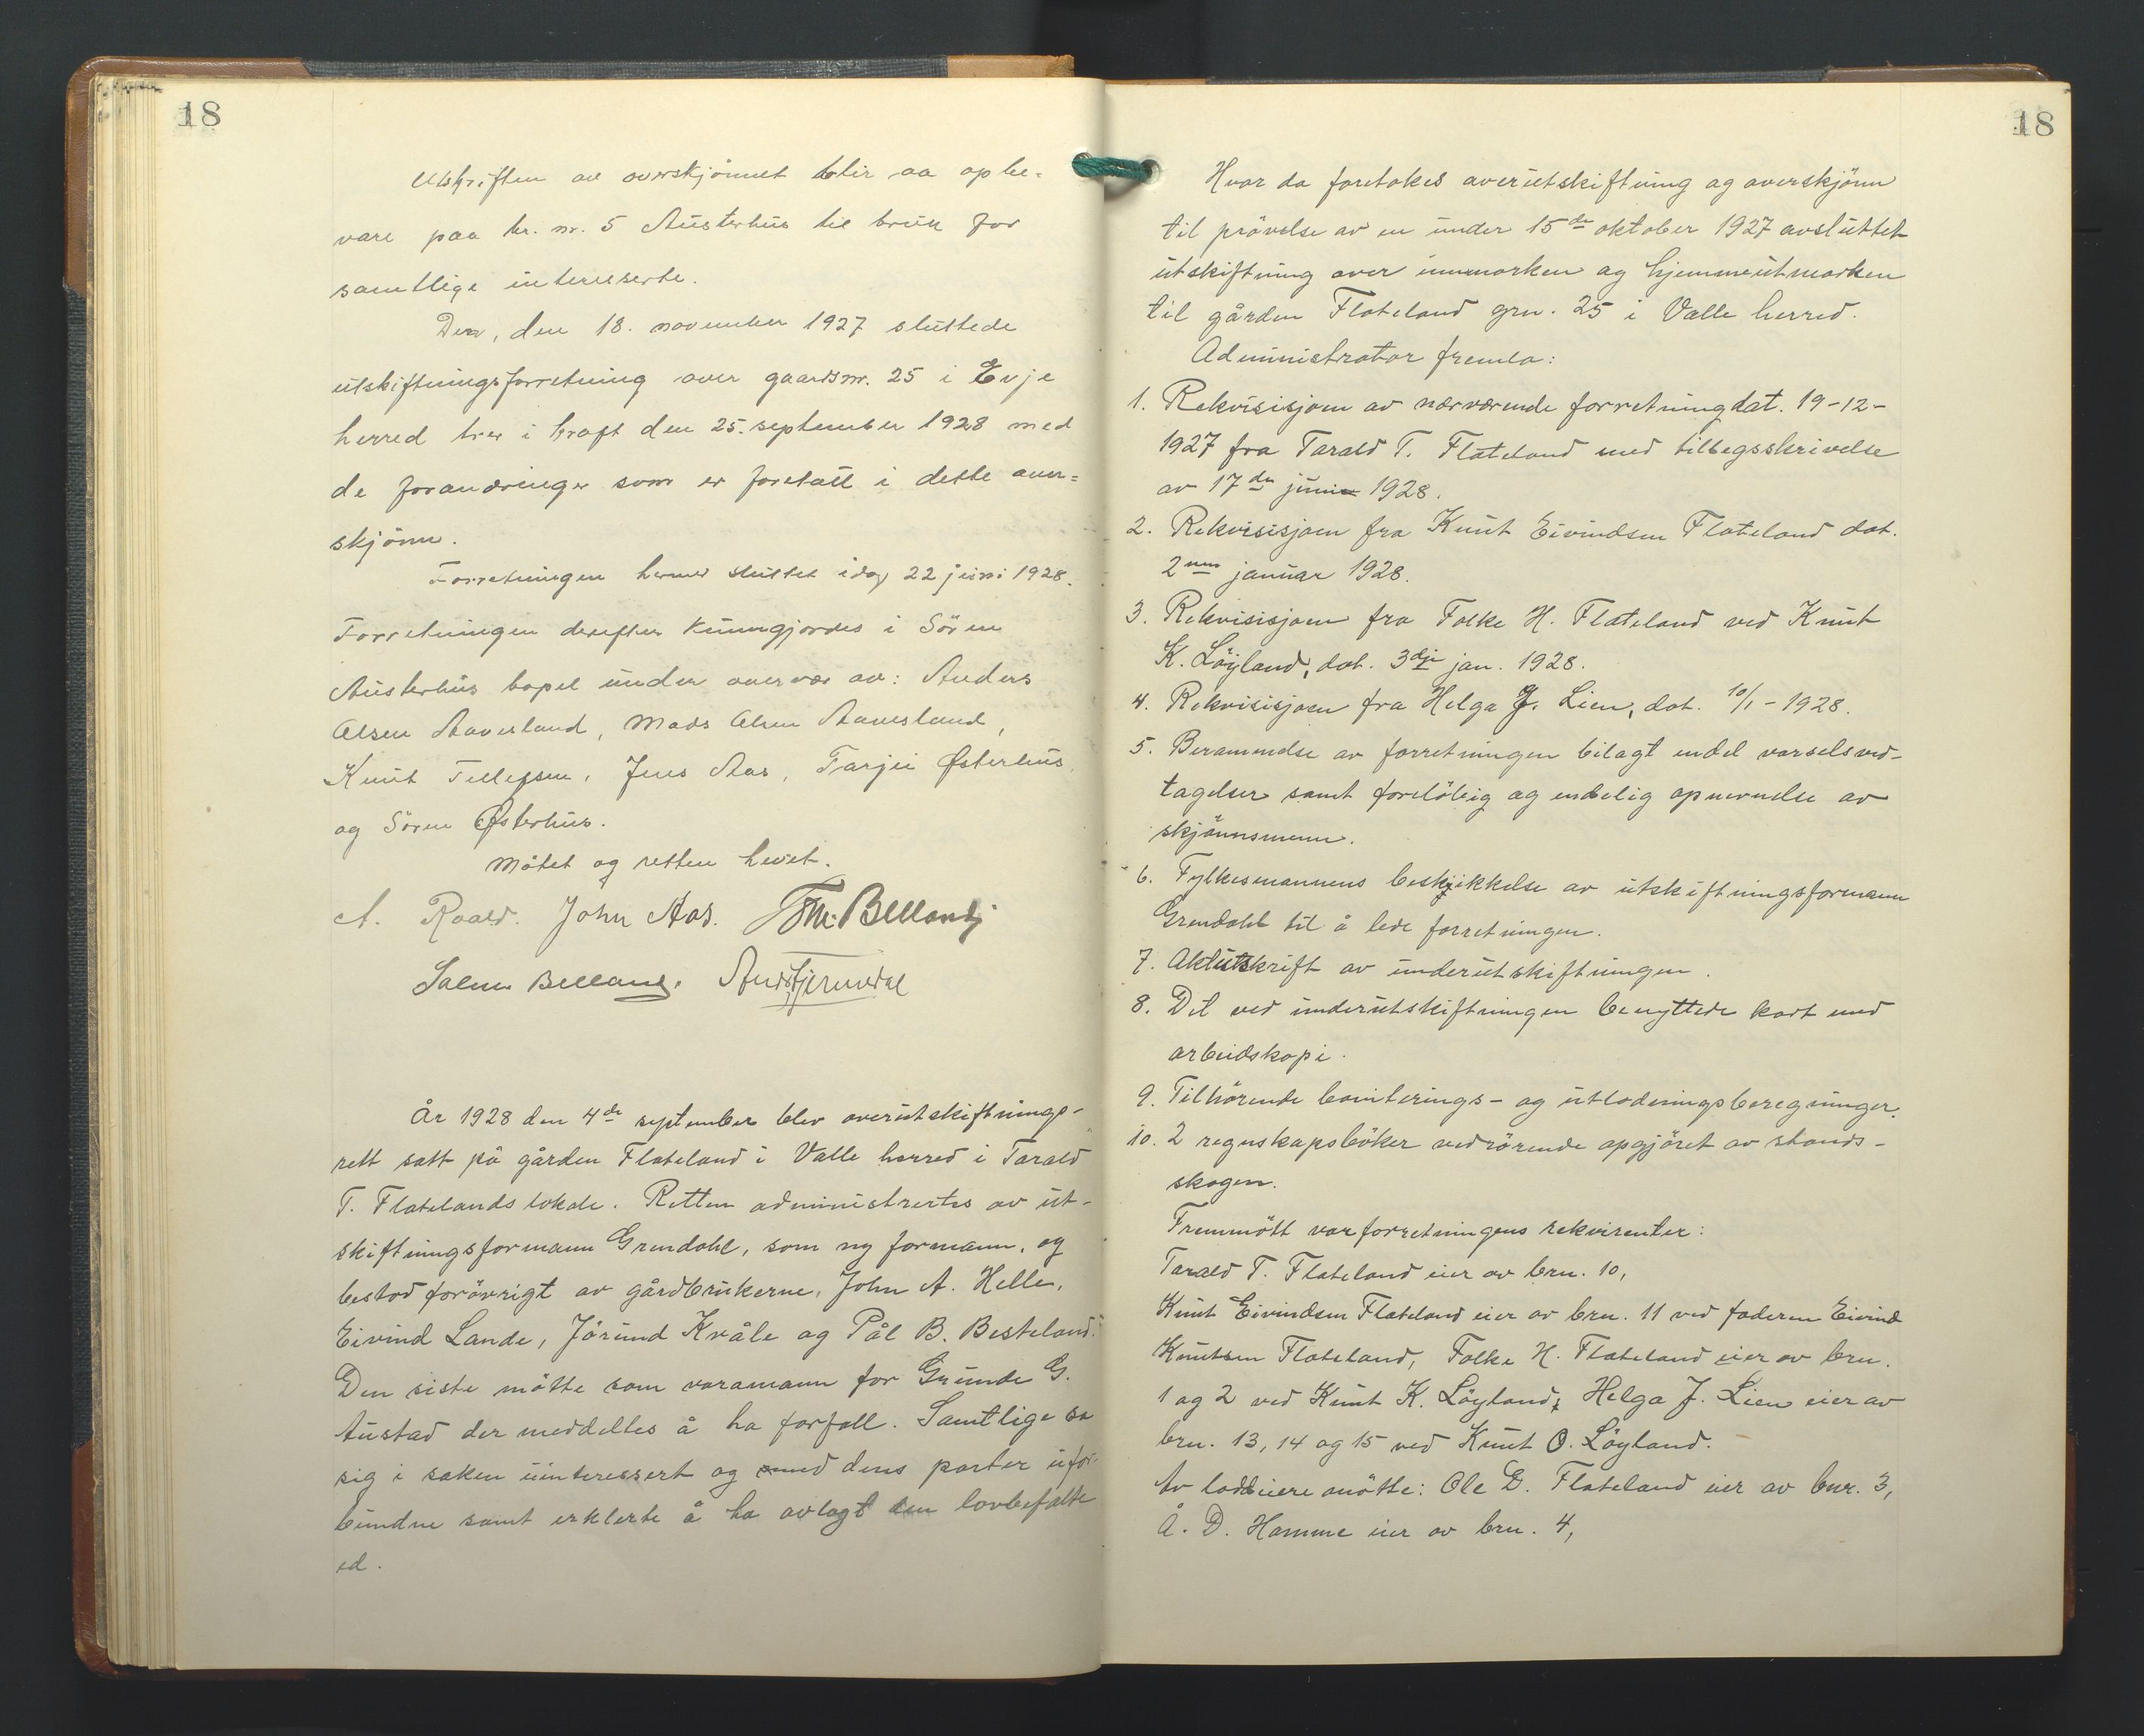 18
Utskriften av overskjönnet blir aa opbe-
vare paa br. nr. 5 Austerhus til bruk for
samtlige interesserte.
Den, den 18. november 1927 sluttede
utskiftningsforretning over gaardsnr. 25 i Evje
herred trer i kraft den 25. september 1928 med
de forandringer som er foretatt i dette over-
skjönn.
Forretningen hermed sluttet idag 22 juni 1928.
Forretningen derefter kunngjordes i Sören
Austerhus bopel under overvær av: Anders
Olsen Aavesland, Mads Olsen Aavesland,
Knut Tellefsen, Jens Aas, Tarjei Østerhus,
og Sören Østerhus.
Mötet og retten hevet.
A. Roald. John Aas. Th. Belland
Salve Belland.
År 1928 den 4de september blev overutskiftnings-
rett satt på gården Flateland i Valle herred i Tarald
T. Flatelands lokale. Retten administrertes av ut-
skiftningsformann Grendahl, som ny formann, og
bestod forövrigt av gårdbrukerne, John A. Helle,
Eivind Lande, Jörund Kvåle og Pål B. Besteland.
Den siste mötte som varamann for Gunde G.
Austad der meddeltes å ha forfall. Samtlige sa
sig i saken uinteressert og med dens parter ufor-
bundne samt erklerte å ha avlagt den lovbefalte
ed.
18
Hvor da foretokes overutskiftning og overskjönn
til prövelse av en under 15de oktober 1927 avsluttet
utskiftning over innmarken og hjemmeutmarken
til gården Flateland grn. 25 i Valle herred.
Administrator fremla:
1. Rekvisisjonen av nærværende forretning dat. 19-12-
1927 fra Tarald T. Flateland med tilleggsskrivelse
av 17de juni 1928.
2. Rekvisisjoen fra Knut Eivindsen Flateland dat.
2nen januar 1928.
3. Rekvisisjoen fra Folke H. Flateland ved Knut
K. Löyland, dat. 3dje jan. 1928.
4. Rekvisisjoen fra Helga J. Lien, dat. 10/1 - 1928.
5. Berammelse av forretningen bilagt endel varselsved-
tagelser samt forelöbig og endelig opnevnelse av
skjönnsmenn.
6. Fylkesmannens beskjikkelse av utskiftningsformann
Grendahl til å lede forretningen.
7. Aktutskrift av underutskiftningen.
8. Det ved underutskiftningen benyttede kart med
arbeidskopi.
9. Tilhörende boniterings- og utlodningsberegninger.
10. 2 regnskapsböker vedrörende opgjöret av stands-
skogen.
Fremmött var forretningens rekvirenter:
Tarald T. Flateland eier av bru. 10,
Knut Eivindsen Flateland eier av bru. 11 ved faderen Eivind
Knutsen Flateland, Folke H. Flateland eier av bru.
1 og 2 ved Knut K. Löyland, Helga J. Lien eier av
bru. 13, 14 og 15 ved Knut O. Löyland.
Av loddeiere mötte: Ole D. Flateland eier av bnr. 3,
Å. D. Homme eier av bru. 4,